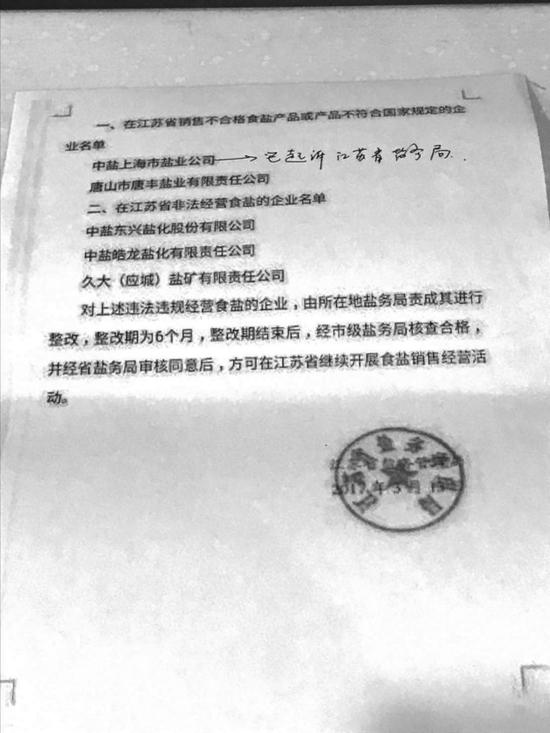 一、在江苏省销售不合格食盐产品或产品不符合国家规定的企
业名单
中盐上海市盐业公司 已起诉江苏省盐务局.
唐山市唐丰盐业有限责任公司
二、在江苏省非法经营食盐的企业名单
中盐东兴盐化股份有限公司
中盐皓龙盐化有限责任公司
久大（应城）盐矿有限责任公司
对上述违法违规经营食盐的企业，由所在地盐务局责成其进行
整改，整改期为6个月，整改期结束后，经市级盐务局核查合格，
并经省盐务局审核同意后，方可在江苏省继续开展食盐销售经营活
动。
2017年3月13